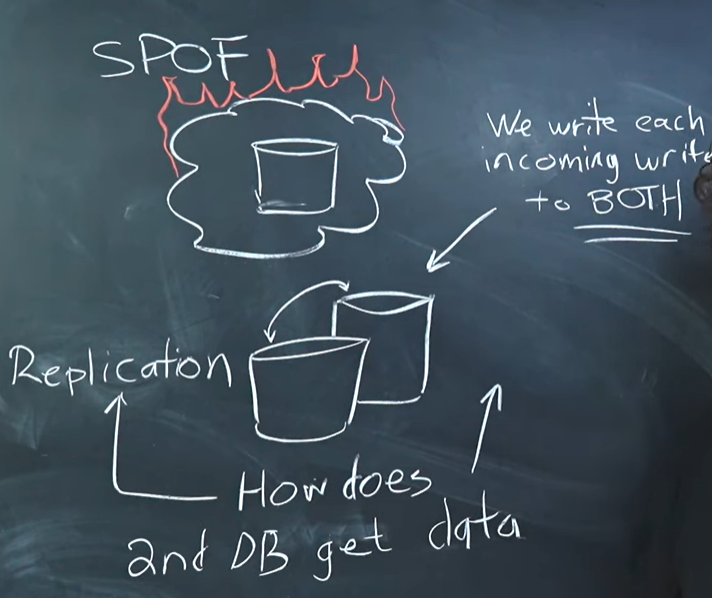 SPOF
We write each
incoming write
to BOTH
Replication
How does
2nd DB get data